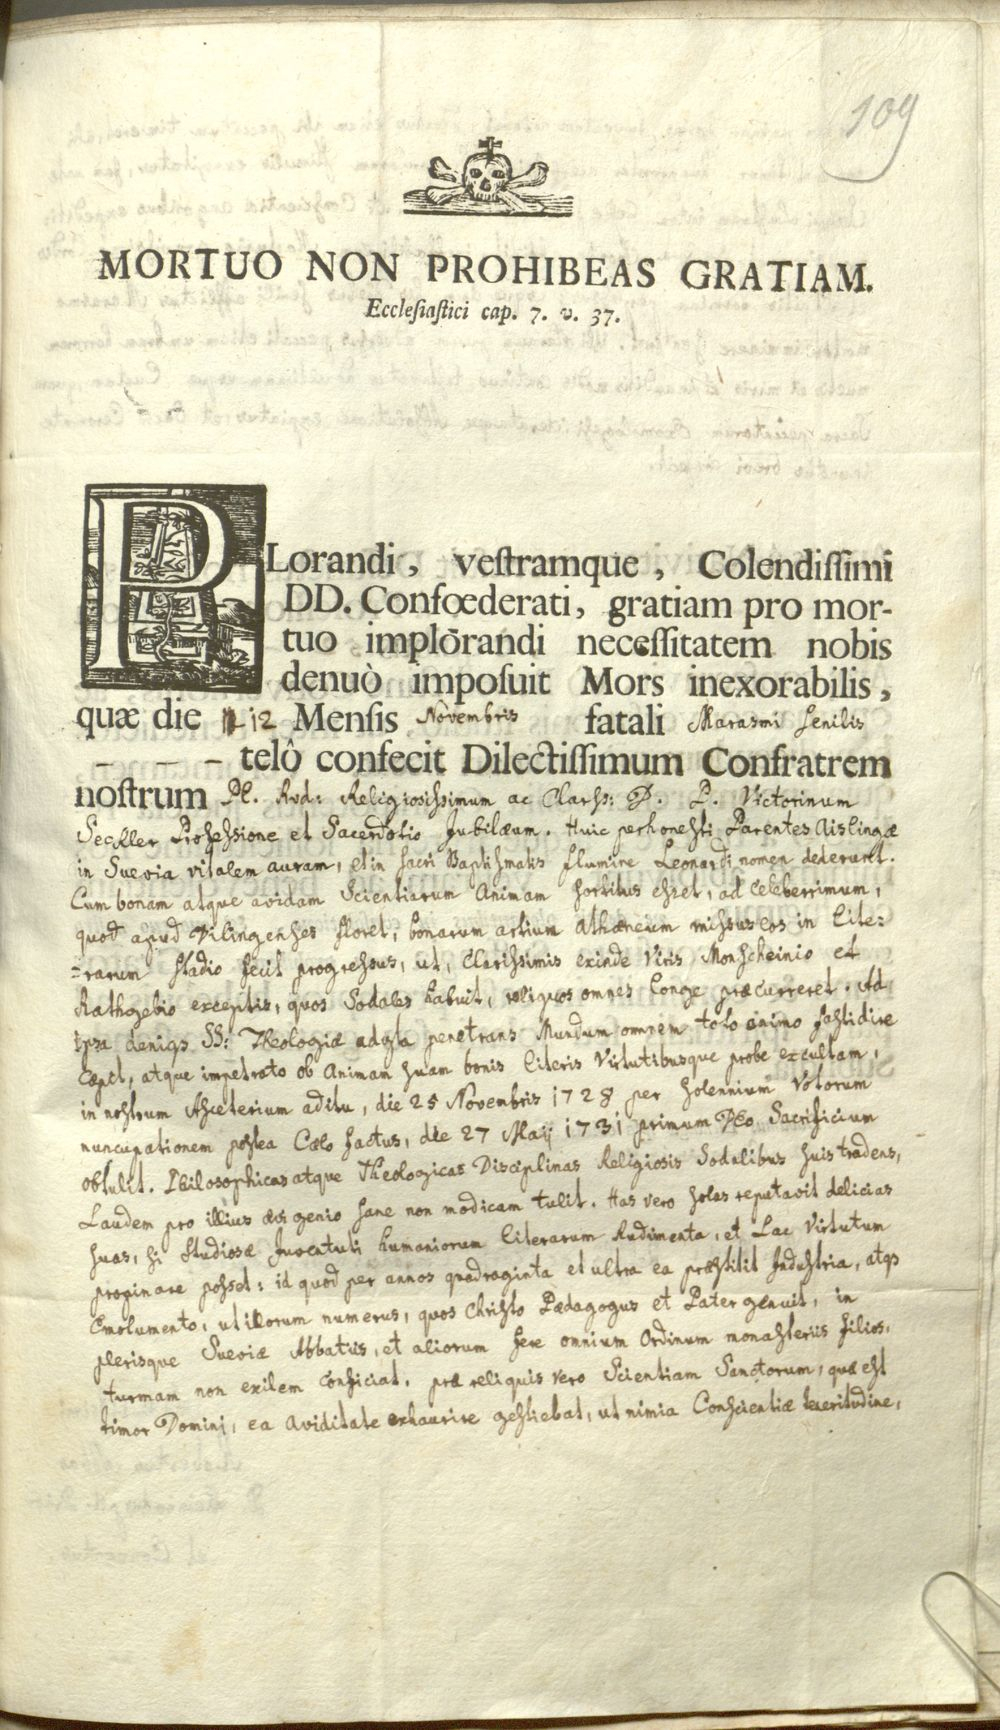 109
MORTUO NON PROHIBEAS GRATIAM.
Ecclesiastici cap. 7. v. 37.
PLorandi, vestramque, Colendissimi
DD. Confœderati, gratiam pro mor-
tuo implōrandi necessitatem nobis
denuò imposuit Mors inexorabilis,
quæ die 12 Mensis Novembris fatali Marasmi senilis
– – – telô confecit Dilectissimum Confratrem
nostrum Pl. Rvd: Religiosissimum ac Clarss: D. P. Victorinum
Seckler Professione et Sacerdotio Jubilæum. Huic perhonesti Parentes Aislingæ
in Suevia vitalem auram, et in sacri Baptismatis flumine Leonardi nomen dederunt.
Cum bonam atque avidam Scientiarum Animam sortitus esset, ad celeberrimum,
quod apud Vilingenses floret, bonarum artium Athæneum missus eos in Lite:
=rarum stadio fecit progressus, ut, Clarissimis exinde Viris Monscheinio et
Rathgebio exceptis, quos Sodales habuit, reliquos omnes longe præcurreret. Ad
ipsa deniqs SS: Theologiæ adyta penetrans Mundum omnem toto animo fastidire
cæpit, atque impetrato ob Animam suam bonis literis Virtutibusque probe excultam,
in nostrum Asceterium aditu, die 25 Novembris 1728 per solennium Votorum
nuncupationem postea Cælo factus, die 27 Maij 1731 primum Deo Sacrificium
obtulit. Philosophicas atque Theologicas Disciplinas Religiosis Sodalibus suis tradens,
Laudem pro illius ævi genio sane non modicam tulit. Has vero solas reputavit delicias
suas, si studiosæ Juventuti humaniorum Literarum Rudimenta, et Lac Virtutum
propinare posset: id quod per annos quadraginta et ultra ea præstitit Industria, atqs
Emolumento, ut illorum numerus, quos Christo Pædagogus et Pater genuit, in
plerisque Sueviæ Abbatiis, et aliorum fere omnium Ordinum monasteriis filios,
turmam non exilem conficiat. præ reliquis vero Scientiam Sanctorum, quæ est
timor Domini, ea aviditate exhaurire gestiebat, ut nimia Conscientiæ teneritudine,